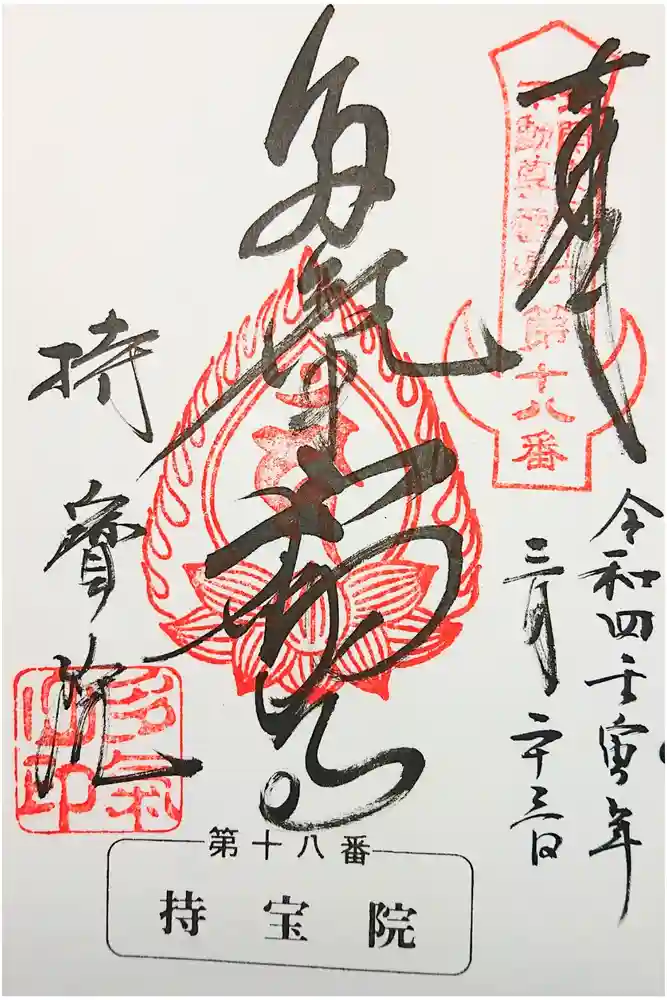 奉拝
不動尊霊場第十八番
令和四壬寅年
三月二十三日
多気不動尊
持寳院
多氣山印
第十八番
持宝院